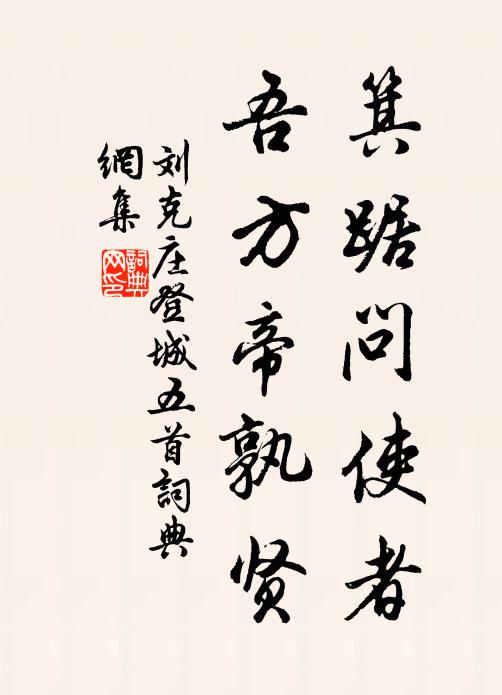 箕踞問使者
吾方帝孰贤
刘克庄登城五首詞典
網集
詞典
网印